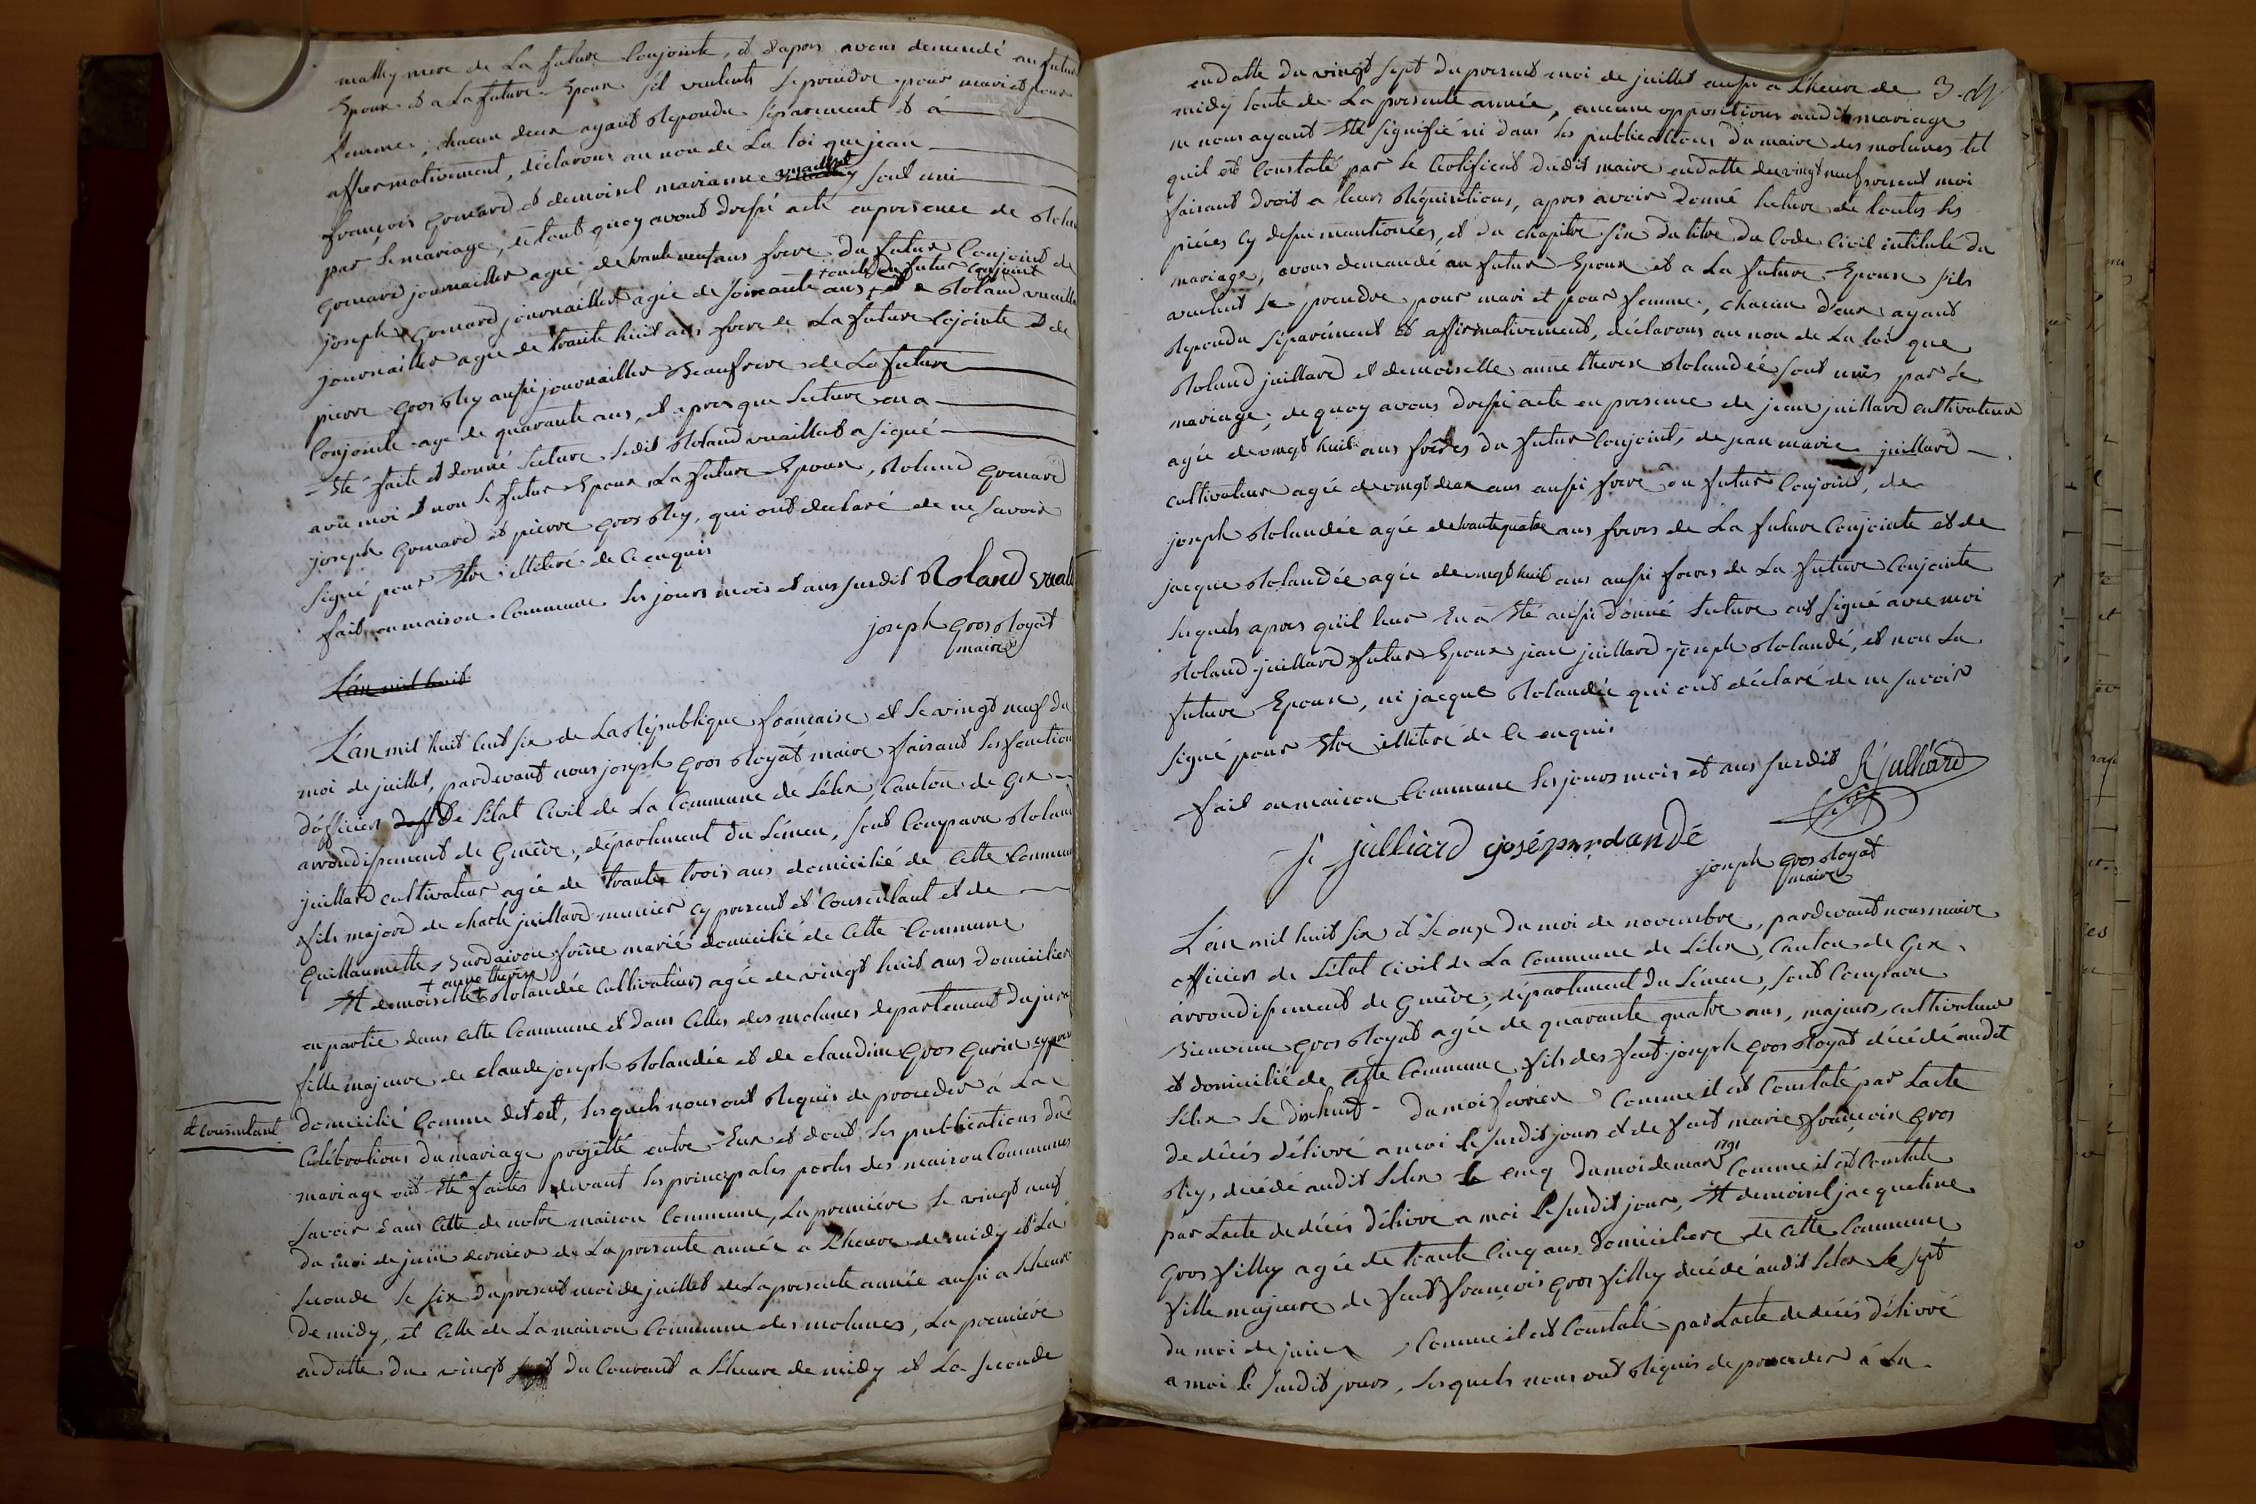 mathy mere de La future Conjointe, et d'apres avons demandé au futur
Epoux et a La future Epoux s'il veulents se prendre pour mari et pour
femme, chacun deux ayant Repondu séparement et a
affirmativement, déclarons au non de La loi que jean
françois gromard et demoisel marianne vuaillet sont uni
par Le mariage, de tout quoy avont dressé acte en presence de Rolan
gromard journaillier agée de trante neuf ans frere du futur Conjoint de
joseph gromard journaillier agée de soixante ans + oncle du futur Conjoint et de Roland vuaille
journaillier agée de trante huit ans frere de La future Cojointe et de
pierre gros Rey aussi journaillier Beaufrere de La future
Conjointe agé de quarante ans, et apres que Lecture en a
Eté faite et donné Lecture, Ledit Roland vuaillet a signé
avec moi et non Le futur Epoux La future Epoux, Roland gromard
joseph gromard et pierre gros Rey, qui ont declaré de ne savoir
signé pour Etre illitéré de ce enquis
fait en maison Commune Les jours mois et ans susdit Roland vuall
joseph gros Royat
maire
L'an mil huit
L'an mil huit Cent six de La République francaise et Le vingt neuf du
moi de juillet, pardevant nous joseph gros Royat maire faisant Les fonction
d'officier de L'état Civil de La Commune de Lélex, Canton de Gex
arrondissement de Genève, département du Léman, sont Comparu Rolan
juillard cultivateur agée de trante trois ans domicilié de Cette Commun
fils majord de charle juillard munier cy present et Consentant et de
guillaumette Burdairon soine marié domicilié de Cette Commune
Et demoiselle + anne therese Rolandée Cultivateurs agée de vingt huit ans domicilier
en partie dans Cette Commune et dans Celles des molunes departement du jura
fille majeure de claude joseph Rolandée et de claudine gros gurin cy pres
et Consentant
domicilié Comme dit est, Lesquels nous ont Requis de proceder à La
Célébrations du mariage projetté entre Eux et dont Les publications dud
mariage ont Eté faites devant Les principales portes des maison Communes
savoir dans Cette de notre maison Commune, La premiére Le vingt neuf
du moi de juin dernier de La presente année a L'heure de midy et La
seconde Le six du present moi de juillet de La presente année aussi a L'heure
De midy, et Celle de La maison Commune des molunes, La premiére
en datte du vingt du Courant a L'heure de midy et La seconde
en datte du vingt sept du present moi de juillet aussi a L'heure de
3
midy toute de La presente année, aucune oppositions audit mariage
ne nous ayant Eté signifié ni dans Les publications du maire des molunes tel
quil est Constaté par Le Certificat dudit maire en datte du vingt neuf present moi
faisant droit a leurs Réquisitions, apres avoir Donné Lecture de toutes Les
piéces cy dessu mantionées, et du chapitre six du titre du Code Civil intitulé du
mariage, avons demandé au futur Epoux et a La future Epouse sils
veulent se prendre pour mari et pour femme, chacun d'eux ayant
Repondu séparément et affirmativement, déclarons au non de La loi que
Roland juillard et demoiselle anne therese Rolandée sont unis par Le
mariage; de quoy avons dressé acte en presence de jean juillard cultivateur
agée de vingt huit ans fréres du futur Conjoint, de jean marie juillard
cultivateur agée de vingt deux ans aussi frere du futur Conjoint, de
joseph Rolandée agée de trante quatre ans freres de La future Conjointe et de
jacque Rolandée agée de vingt huit ans aussi freres de La future Conjointe
Lesquels apres qu'il leur En a Eté aussi donné Lecture ont signé avec moi
Roland juillard futur Epoux jean juillard joseph Rolandé, et non La
future Epouse, ni jacque Rolandée qui ont déclaré de ne savoir
signé pour Etre illitéré de Ce enquis
fait en maison Commune Les jours mois et ans susdit R julliard
j julliard joséph rolandé
joseph gros Royat
maire
L'an mil huit six et Le onze du moi de novembre, pardevant nous maire
officier de L'état Civil de La Commune de Lélex, Canton de Gex,
arrondissement de Genève, département du Léman, sont Comparu
Bienvenu gros Royat agée de quarante quatre ans, majeurs, cultivateur
et domicilié de Cette Commune fils des feut joseph gros Royat décédé audit
Lélex Le dixhuit du moi fevrier Comme il est Constaté par L'acte
de décés délivré a moi Le susdit jours et de feut marie francois gros
Rey, décédé audit Lélex Le cinq du moi de mar 1791 Comme il est Constaté
par L'acte de décés délivré a moi Le susdit jour, Et demoisel jacqueline
gros filley agée de trante Cinq ans domiciliere de Cette Commune
fille majeure de feut francois gros filley decédé audit Lélex Le sept
du moi de juin Comme il est Constaté par L'acte de décés délivré
a moi Le susdit jours, Lesquels nous ont Réquis de proceder á La